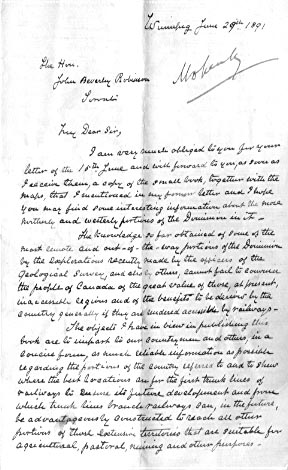 Winnipeg June 29th 1891
The Hon.
John Beverly Robinson
Toronto
My Dear Sir,
I am very much obliged to you for your
letter of the 15th June and will forward to you, as soon as
I receive them, a copy of the small book, together with the
maps that I mentioned in my former letter and I hope
you may find some interesting information about the more
northerly and westerly portions of the Dominion in it -
The knowledge so far obtained of some of the
most remote and out-of-the-way portions of the Dominion
by the explorations recently made by the officers of the
Geological Survey, and also by others, cannot fail to convince
the people of Canada of the great value of those, at present,
inaccessible regions and of the benefits to be derived by the
country generally if they are rendered accessible by railways -
The objects I have in view in publishing this
book are to impart to our countrymen and others, in a
concise form, as much reliable information as possible
regarding the portions of the country referred to and to shew
where the best locations are for the first trunk lines of
railways to ensure its future development and from
which trunk lines branch railways can, in the future,
be advantageously constructed to reach all other
portions of those extensive territories that are suitable for
agricultural, pastoral, mining and other purposes -